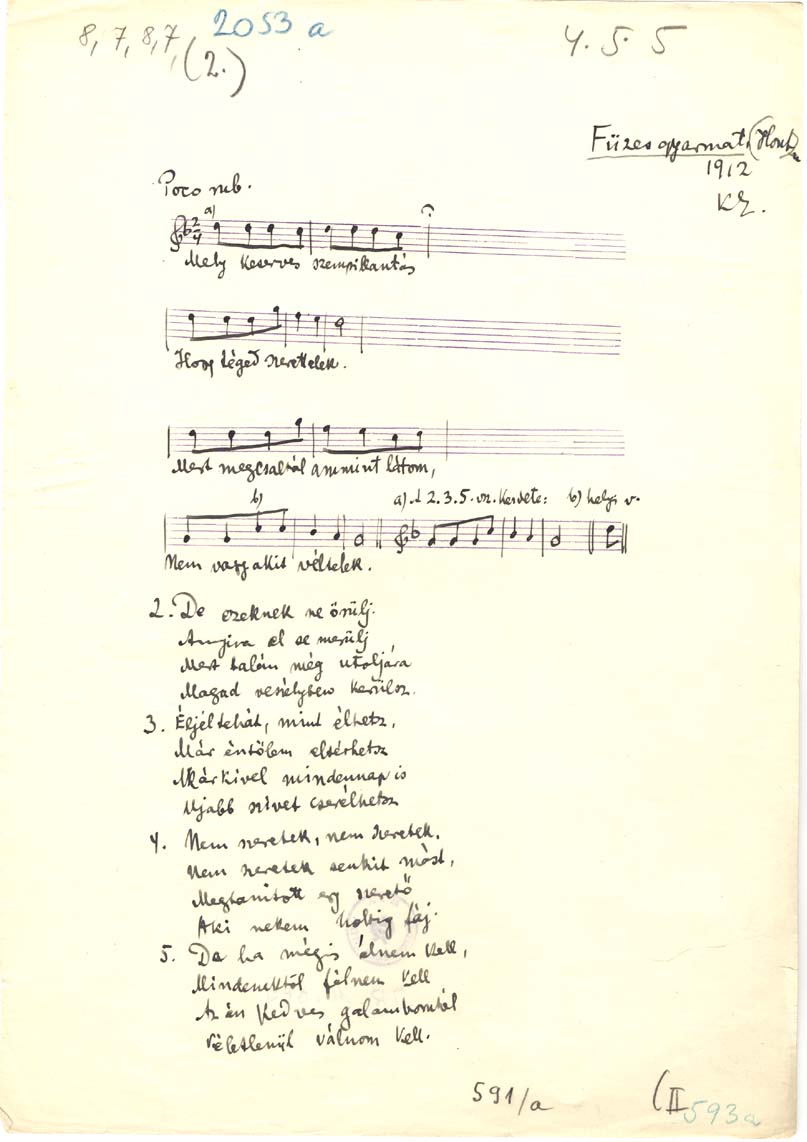 8, 7, 8, 7, 2053 a 4. 5. 5
(2.)
Füzesgyarmat, (Hont)
1912
KZ.
Poco rub.
a)
2
4
Mely keserves szempillantás
Hogy téged szerettelek.
Mert megcsaltál ammint látom,
b) a) A 2. 3. 5. vsz. kezdete: b) helyi v.
Nem vagy akit véltelek.
2. De ezeknek ne örülj.
Annyira el se merülj
Mert talán még utoljára
Magad veszélyben kerülsz.
3. Éljél tehát, mint élhetsz,
Már éntőlem eltérhetsz
Márkivel mindennap is
Ujabb szivet cserélhetsz
4. Nem szeretek, nem szeretek,
Nem szeretek senkit mást,
Megtanitott egy szerető
Aki nekem holtig fáj.
5. De ha mégis élnem kell,
Mindenektől félnem kell
Az én kedves galambomtól
Véletlenül válnom kell.
591/a (II 593a